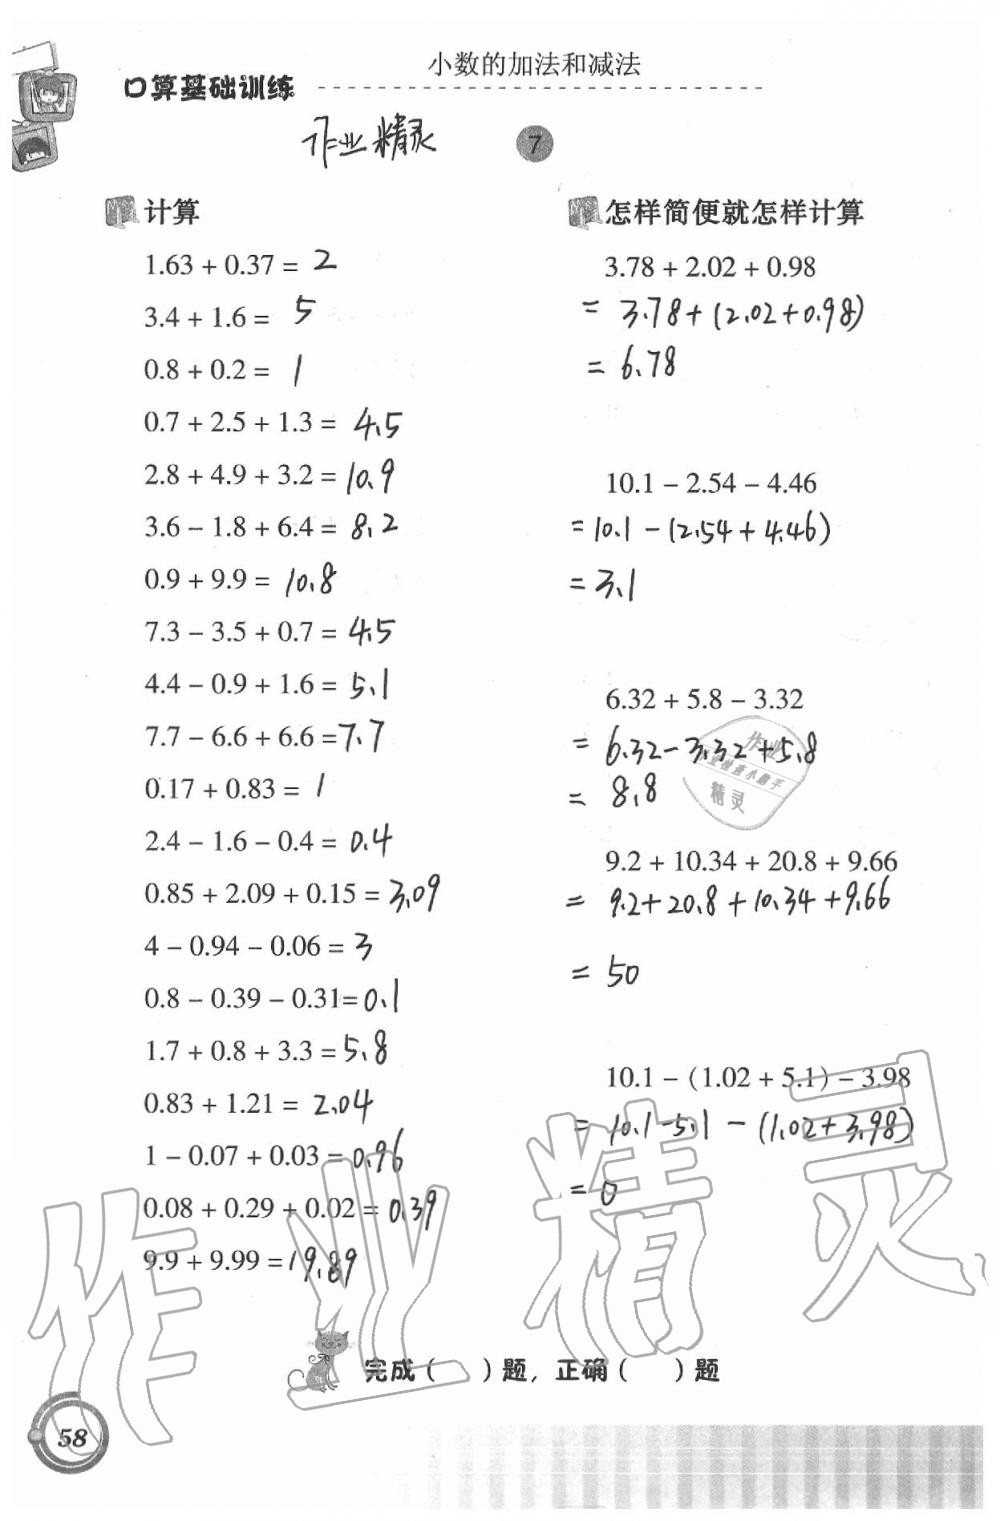 小数的加法和减法
口算基础训练
作业精灵
7
计算
1.63 + 0.37 = 2
3.4 + 1.6 = 5
0.8 + 0.2 = 1
0.7 + 2.5 + 1.3 = 4.5
2.8 + 4.9 + 3.2 = 10.9
3.6 - 1.8 + 6.4 = 8.2
0.9 + 9.9 = 10.8
7.3 - 3.5 + 0.7 = 4.5
4.4 - 0.9 + 1.6 = 5.1
7.7 - 6.6 + 6.6 = 7.7
0.17 + 0.83 = 1
2.4 - 1.6 - 0.4 = 0.4
0.85 + 2.09 + 0.15 = 3.09
4 - 0.94 - 0.06 = 3
0.8 - 0.39 - 0.31 = 0.1
1.7 + 0.8 + 3.3 = 5.8
0.83 + 1.21 = 2.04
1 - 0.07 + 0.03 = 0.96
0.08 + 0.29 + 0.02 = 0.39
9.9 + 9.99 = 19.89
怎样简便就怎样计算
3.78 + 2.02 + 0.98
= 3.78 + (2.02 + 0.98)
= 6.78
10.1 - 2.54 - 4.46
= 10.1 - (2.54 + 4.46)
= 3.1
6.32 + 5.8 - 3.32
= 6.32 - 3.32 + 5.8
= 8.8
作业
精灵
9.2 + 10.34 + 20.8 + 9.66
= 9.2 + 20.8 + 10.34 + 9.66
= 50
10.1 - (1.02 + 5.1) - 3.98
= 10.1 - 5.1 - (1.02 + 3.98)
= 0
作业精灵
完成（　）题，正确（　）题
58